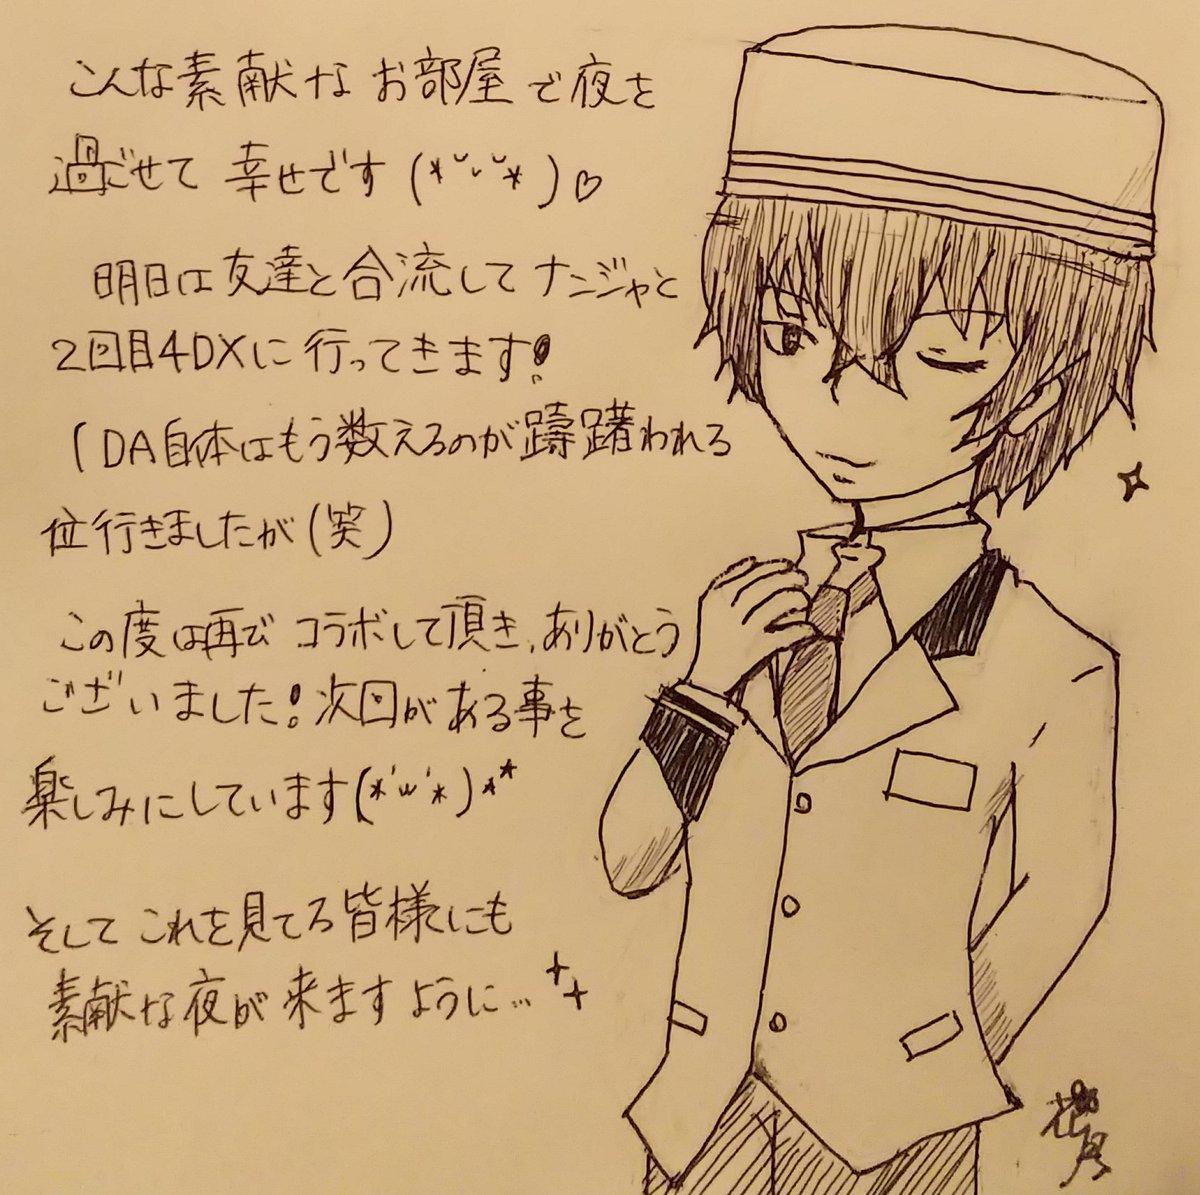 こんな素献な お部屋で夜を
過ごせて 幸せです (*˘ᵕ˘*)♡
明日は友達と合流してナンジャと
2回目4DXに行ってきます!
(DA自体はもう数えるのが躊躇われる
位行きましたが(笑)
この度は再びコラボして頂き、ありがとう
ございました!次回がある事を
楽しみにしています(*'ω'*)**
そして これを見てる皆様にも
素献な夜が来ますように…